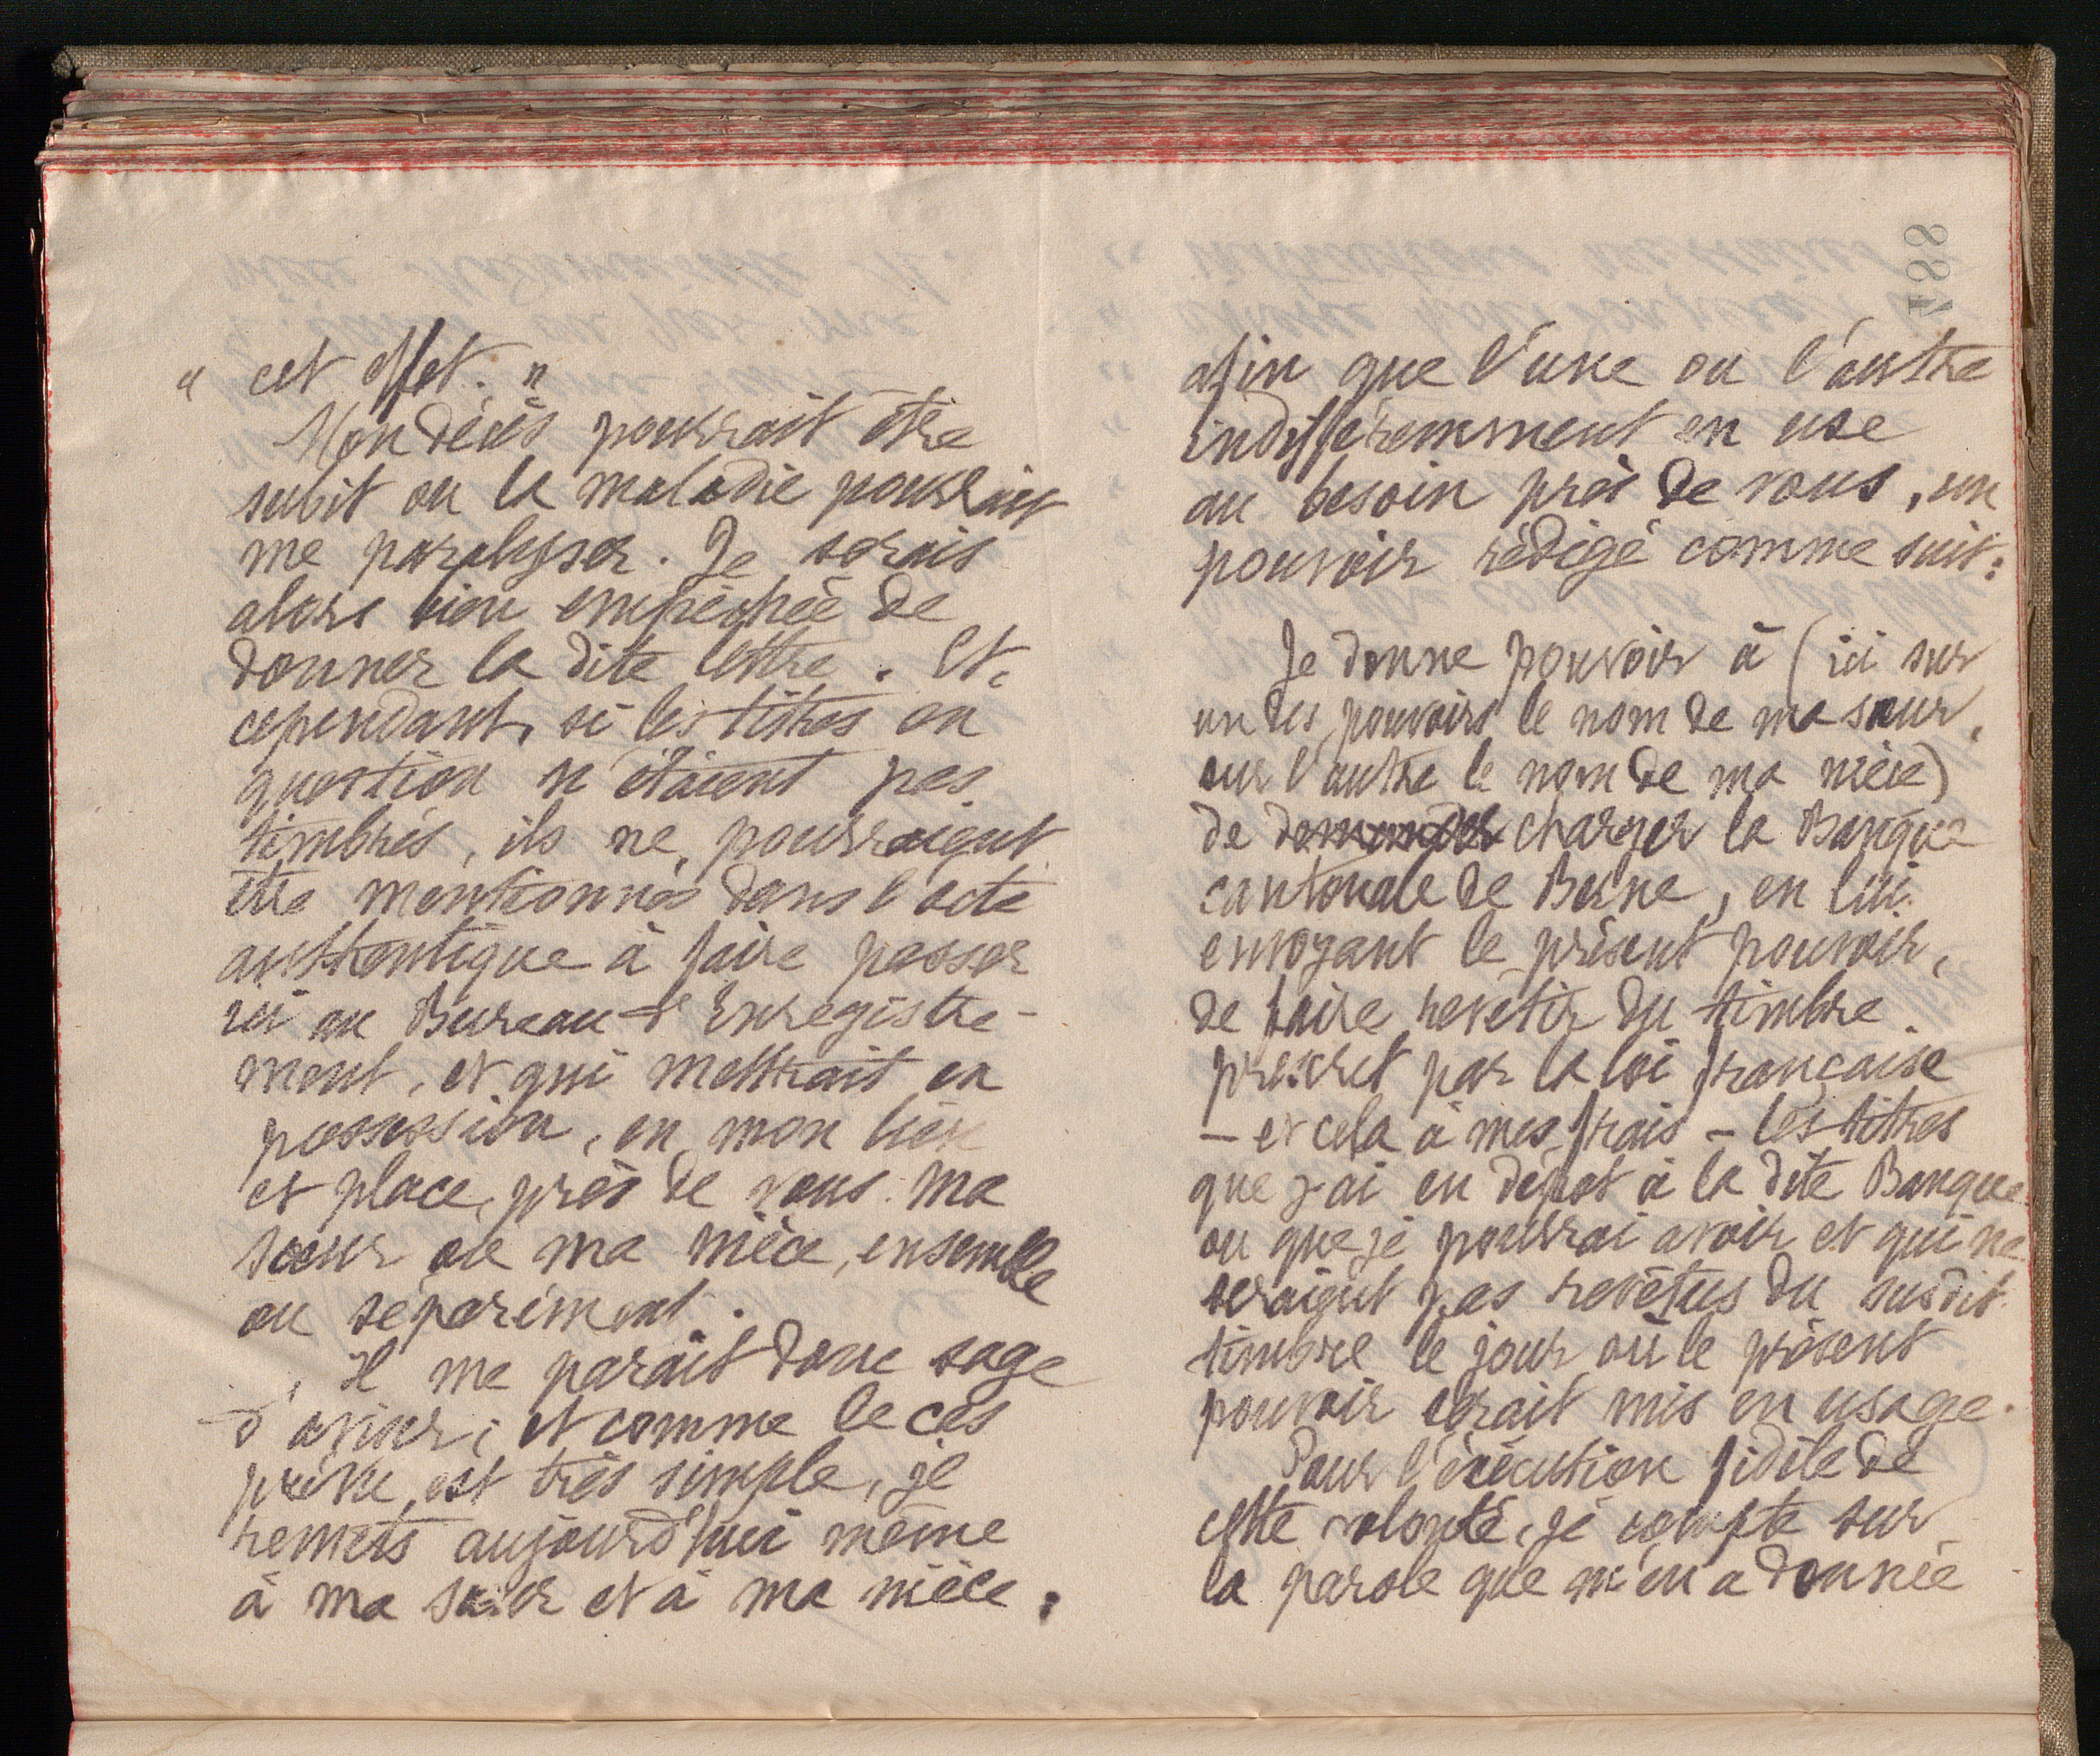 « cet effet. »
Mon décès pourrait être
subit ou la maladie pourrait
me paralyser. Je serais
alors bien empêchée de
donner la dite lettre. Et,
cependant, si les titres en
question n'étaient pas
timbrés, ils ne pourraient
être mentionnés dans l'acte
authentique à faire passer
ici au Bureau d'Enregistre-
ment, et qui mettrait en
possession, en mon lieu
et place, près de vous ma
sœur ou ma nièce, ensemble
ou séparément.
Il me paraît donc sage
d'aviser; et comme le cas
prévu est très simple, je
remets aujourd'hui même
à ma sœur et à ma nièce,
afin que l'une ou l'autre
indifféremment en use
au besoin près de vous, un
pouvoir rédigé comme suit:
Je donne pouvoir à (ici sur
un des pouvoirs le nom de ma sœur,
sur l'autre le nom de ma nièce)
de demander charger la Banque
cantonale de Berne, en lui
envoyant le présent pouvoir,
de faire revêtir du timbre
prescrit par la loi française
– et cela à mes frais – les titres
que j'ai en dépôt à la dite Banque
ou que je pourrai avoir et qui ne
seraient pas revêtus du susdit
timbre le jour où le présent
pouvoir serait mis en usage.
Pour l'exécution fidèle de
cette volonté, je compte sur
la parole que m'en a donnée
488